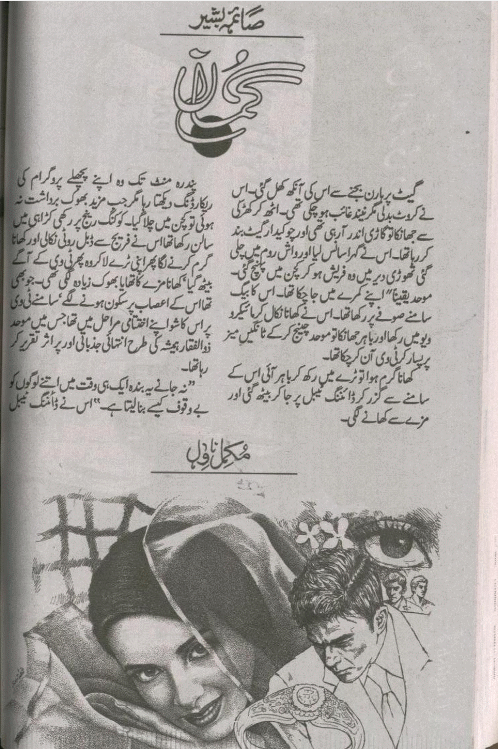 صائمہ بشیر
گماں
گیٹ پر ہارن بجنے سے اس کی آنکھ کھل گئی۔ اس
نے کروٹ بدلی مگر نیند غائب ہو چکی تھی۔ اٹھ کر کھڑکی
سے جھانکا تو گاڑی اندر آ رہی تھی اور چوکیدار گیٹ بند
کر رہا تھا۔ اس نے گہرا سانس لیا اور واش روم میں چلی
گئی تھوڑی دیر میں وہ فریش ہو کر کچن میں پہنچ گئی۔
موحد یقیناً" اپنے کمرے میں جا چکا تھا۔ اس کا بیگ
سامنے صوفے پر رکھا تھا۔ اس نے کھانا نکال کر مائیکرو
ویو میں رکھا اور باہر جھانکا تو موحد چینج کر کے ٹانگیں میز
پر پسار کر ٹی وی آن کر چکا تھا۔
کھانا گرم ہوا تو ٹرے میں رکھ کر باہر آئی اس کے
سامنے سے گزر کر ڈائننگ ٹیبل پر جا کر بیٹھ گئی اور
مزے سے کھانے لگی۔
پندرہ منٹ تک وہ اپنے پچھلے پروگرام کی
ریکارڈنگ دیکھتا رہا مگر جب مزید بھوک برداشت نہ
ہوئی تو کچن میں چلا گیا۔ کوکنگ رینج پر رکھی کڑاہی میں
سالن رکھا تھا اس نے فریج سے ڈبل روٹی نکالی اور کھانا
گرم کرنے لگا پھر اپنی ٹرے لا کر وہ پھر ٹی وی کے آگے
بیٹھ گیا' کھانا مزے کا تھا یا بھوک زیادہ لگی تھی۔ جو بھی
تھا اس کے اعصاب پرسکون ہونے لگے' سامنے ٹی وی
پر اس کا شو اپنے اختتامی مراحل میں تھا جس میں موحد
ذوالفقار ہمیشہ کی طرح انتہائی جذباتی اور پر اثر تقریر کر
رہا تھا۔
"نہ جانے یہ بندہ ایک ہی وقت میں اتنے لوگوں کو
بے وقوف کیسے بنا لیتا ہے۔" اس نے ڈائننگ ٹیبل
مکمل ناول